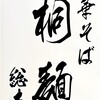 華そば
桐麺
総